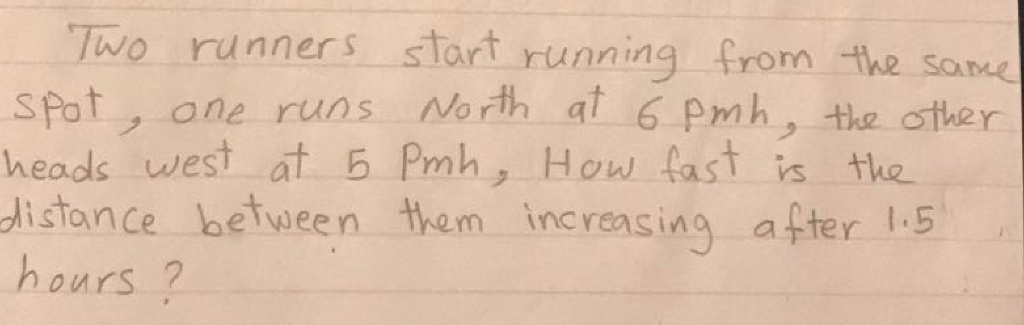 Two runners start running from the same
spot, one runs North at 6 pmh, the other
heads west at 5 Pmh, How fast is the
distance between them increasing after 1.5
hours?